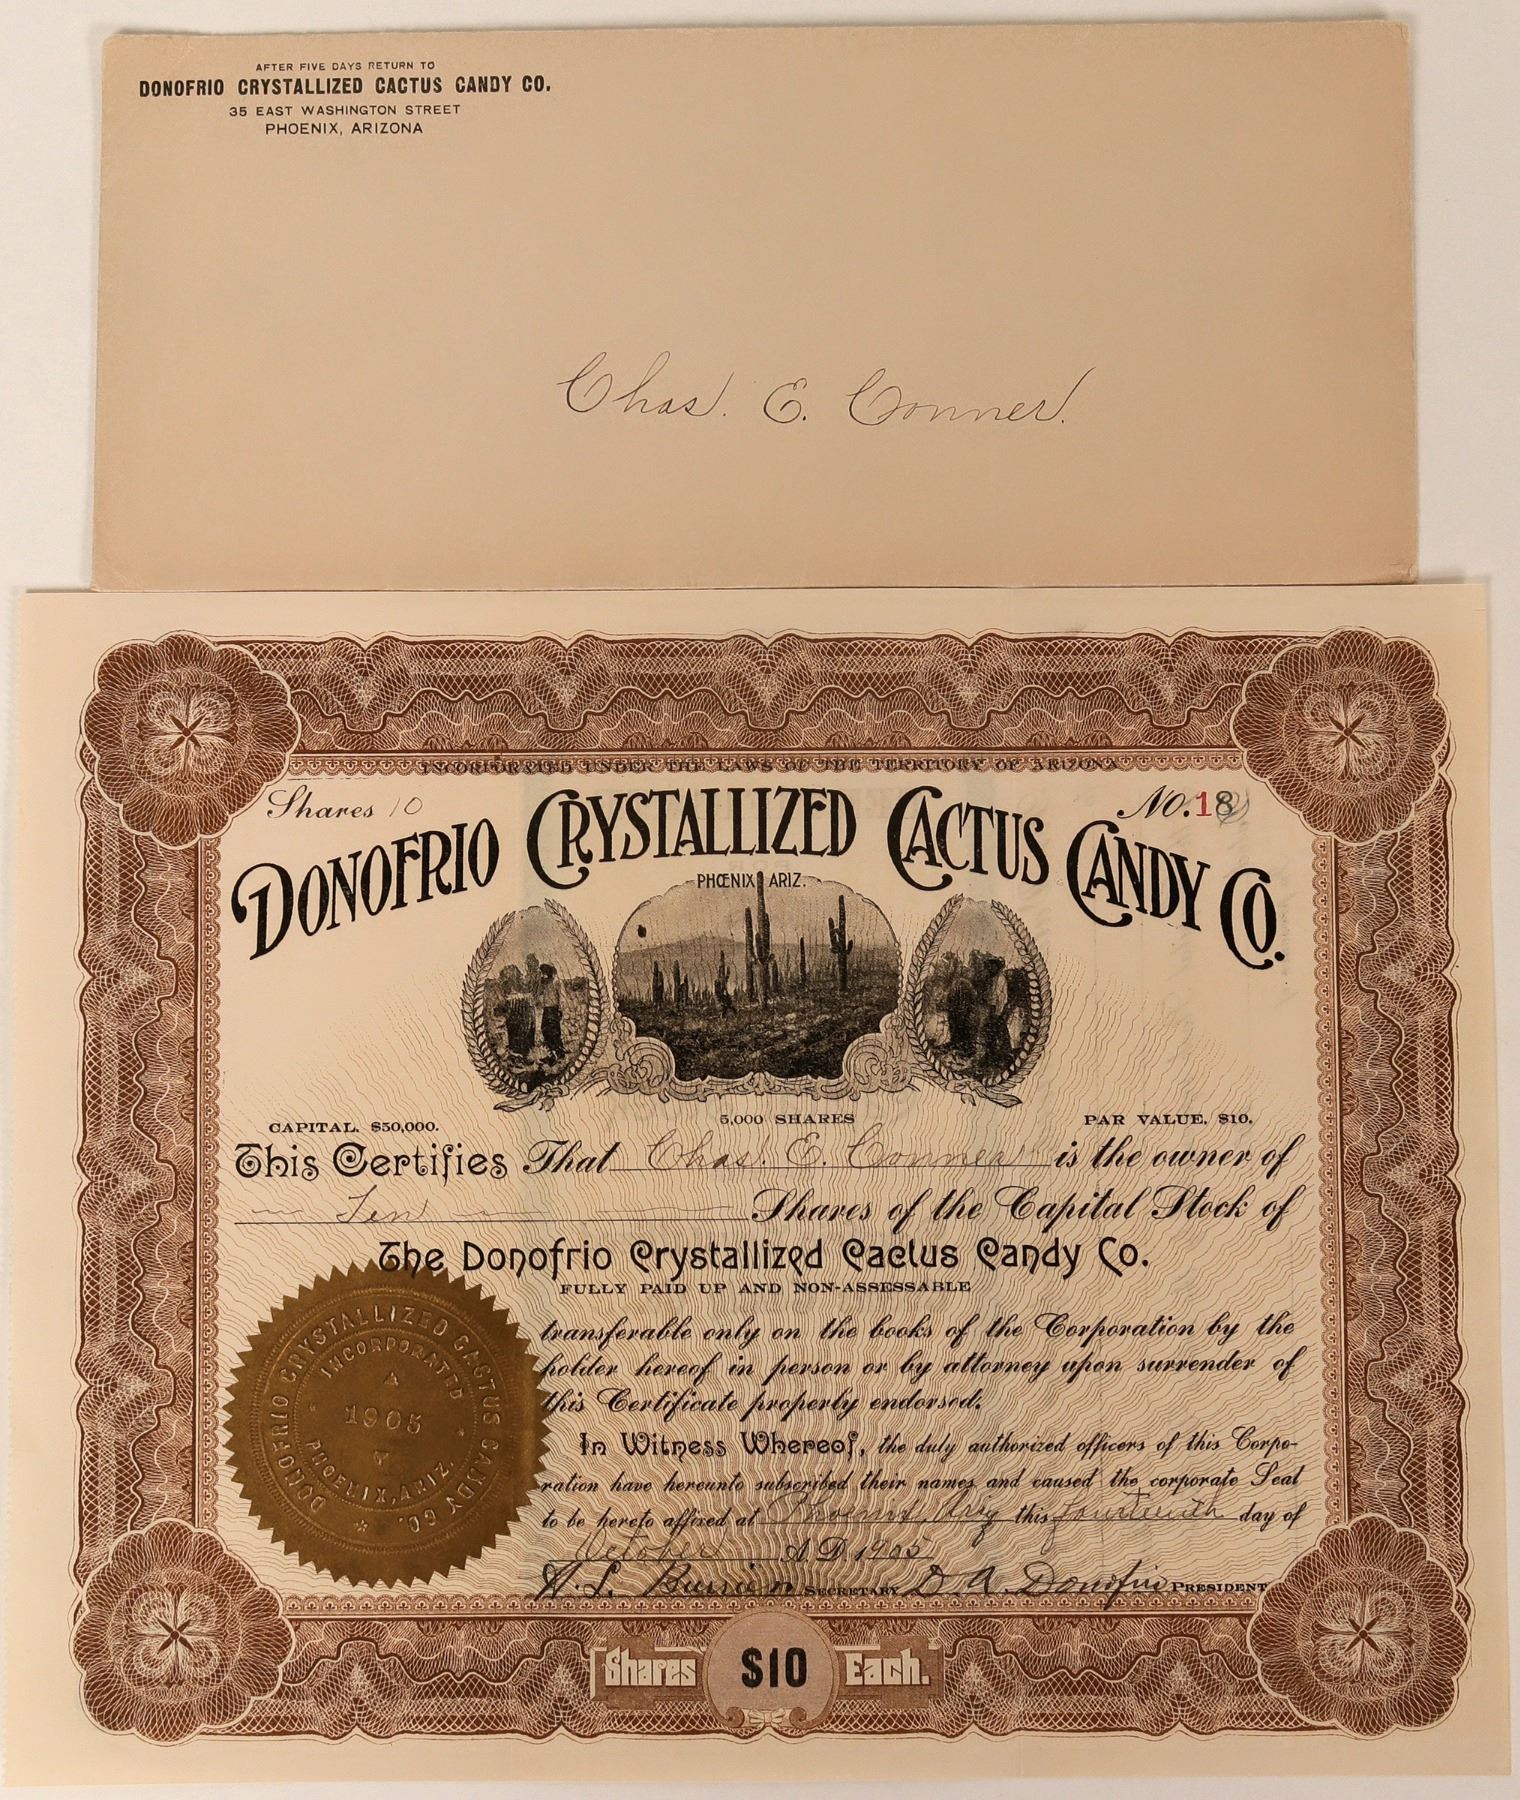 AFTER FIVE DAYS RETURN TO
DONOFRIO CRYSTALLIZED CACTUS CANDY CO.
35 EAST WASHINGTON STREET
PHOENIX, ARIZONA
Chas. E. Conner.
INCORPORATED UNDER THE LAWS OF THE TERRITORY OF ARIZONA
Shares 10
No. 18
DONOFRIO CRYSTALLIZED CACTUS CANDY CO.
PHŒNIX, ARIZ.
CAPITAL. $50,000.
5,000 SHARES
PAR VALUE, $10.
This Certifies That Chas. E. Conner is the owner of
Ten Shares of the Capital Stock of
The Donofrio Crystallized Cactus Candy Co.
FULLY PAID UP AND NON-ASSESSABLE
transferable only on the books of the Corporation by the
holder hereof in person or by attorney upon surrender of
this Certificate properly endorsed.
In Witness Whereof, the duly authorized officers of this Corpo-
ration have hereunto subscribed their names and caused the corporate Seal
to be hereto affixed at Phoenix Ariz this fourteenth day of
October A.D. 1905
SECRETARY D. A. Donofrio PRESIDENT
DONOFRIO CRYSTALLIZED CACTUS CANDY CO.
INCORPORATED
1905
PHOENIX, ARIZ.
Shares $10 Each.